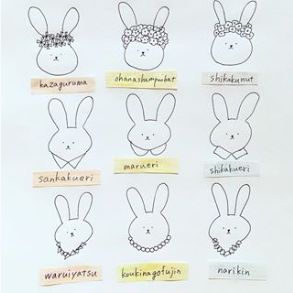 kazaguruma
ohanashumpuhat
shikakunut
sankakueri
marueri
shikakueri
waruiyatsu
koukinagofujin
narikin